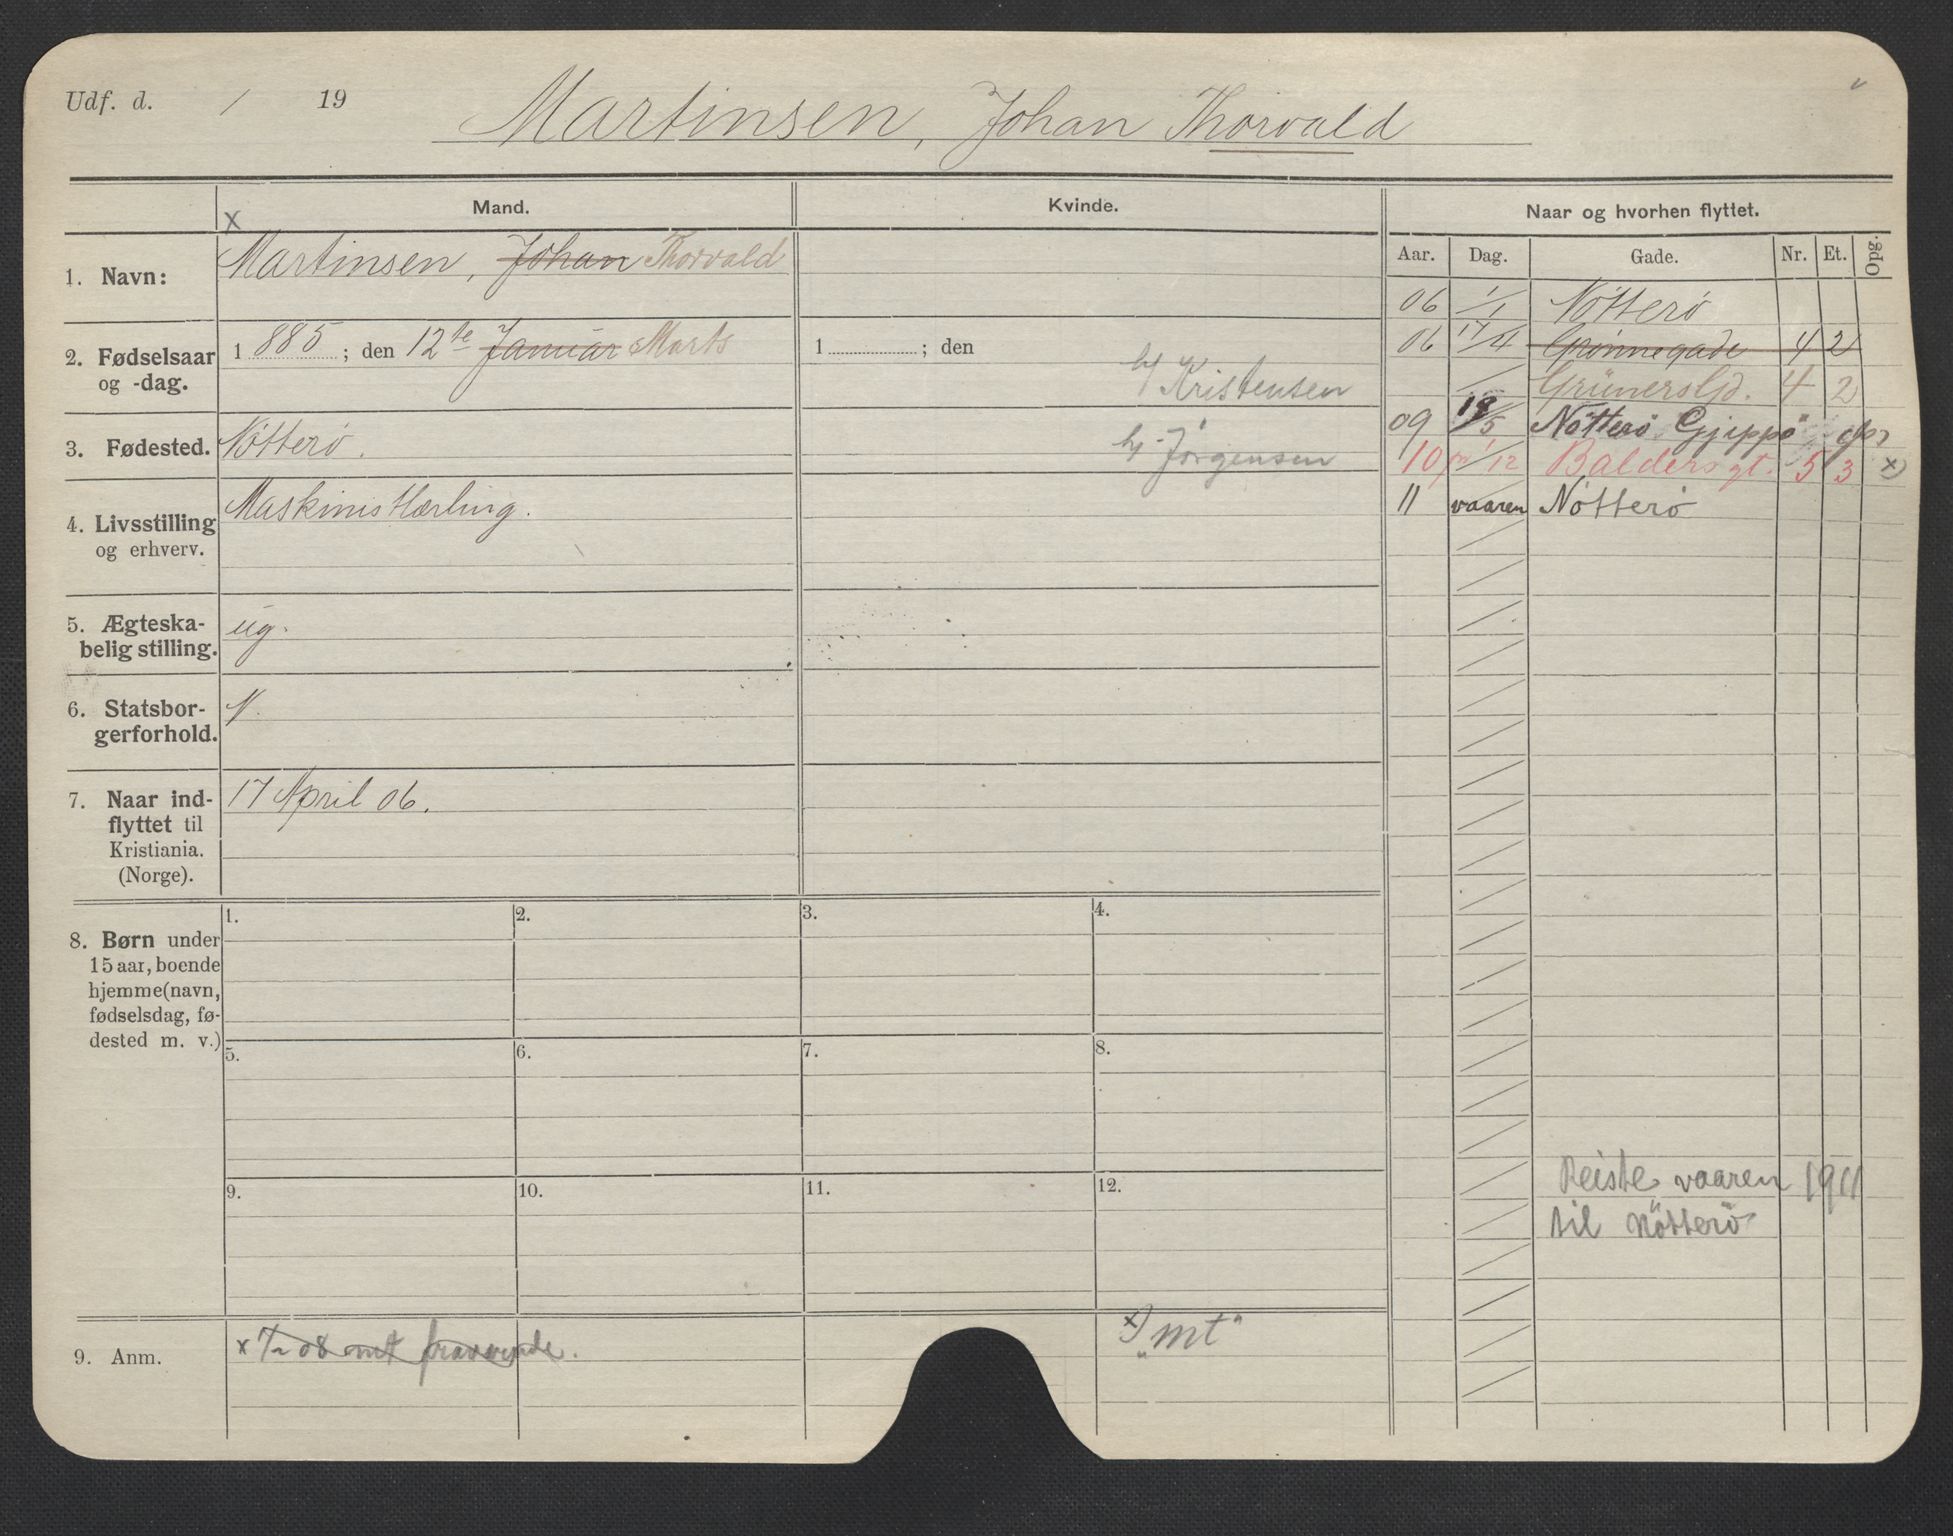 Udf. d. / 19
Martinsen, Johan Thorvald
Mand.
Kvinde.
Naar og hvorhen flyttet.
x
Aar. Dag. Gade. Nr. Et. Opg.
1. Navn: Martinsen, Johan Thorvald
06 1/1 Nötterö
2. Fødselsaar og -dag. 1 885 ; den 12te Januar Marts
1 ; den
06 17/4 Grønnegade 4 2
h/ Kristensen Grünerslđ. 4 2
09 19/5 Nötterö Gjeppø
3. Fødested. Nötterö.
h/ Jørgensen 10 1/12 Baldersgt. 5 3 x)
4. Livsstilling og erhverv. Maskinistlærling.
11 vaaren Nötterö
5. Ægteska-
belig stilling. ug.
6. Statsbor-
gerforhold. N.
7. Naar ind- 17 April 06.
flyttet til
Kristiania.
(Norge).
1. 2. 3. 4.
8. Børn under
15 aar, boende
hjemme (navn,
fødselsdag, fø-
dested m. v.)
5. 6. 7. 8.
9. 10. 11. 12.
Reiste vaaren 1911
til Nötterö
9. Anm. x 08 mt fraværende.
x) "mt"